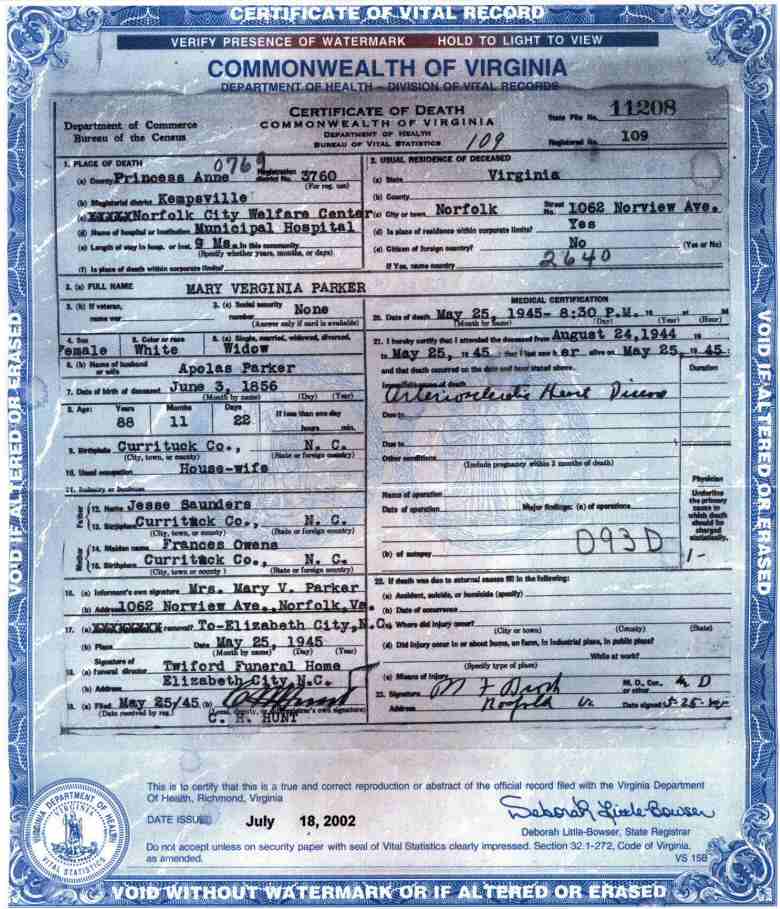 CERTIFICATE OF VITAL RECORD
VERIFY PRESENCE OF WATERMARK HOLD TO LIGHT TO VIEW
COMMONWEALTH OF VIRGINIA
DEPARTMENT OF HEALTH — DIVISION OF VITAL RECORDS
Department of Commerce
Bureau of the Census
CERTIFICATE OF DEATH
COMMONWEALTH OF VIRGINIA
DEPARTMENT OF HEALTH
BUREAU OF VITAL STATISTICS
109
State File No. 11208
Registered No. 109
1. PLACE OF DEATH 0769
(a) County Princess Anne Registration district No. 3760
(For reg. use)
(b) Magisterial district Kempsville
(c) Norfolk City Welfare Center
(d) Name of hospital or institution Municipal Hospital
(e) Length of stay in hosp. or inst. 9 Ms. In this community
(Specify whether years, months, or days)
(f) Is place of death within corporate limits?
2. USUAL RESIDENCE OF DECEASED
(a) State Virginia
(b) County
(c) City or town Norfolk Street No. 1062 Norview Ave.
(d) Is place of residence within corporate limits? Yes
(e) Citizen of foreign country? No (Yes or No)
If Yes, name country 2640
3. (a) FULL NAME MARY VERGINIA PARKER
3. (b) If veteran, name war
3. (c) Social security number None
(Answer only if card is available)
4. Sex Female
5. Color or race White
6. (a) Single, married, widowed, divorced. Widow
6. (b) Name of husband or wife Apolas Parker
7. Date of birth of deceased June 3, 1856
(Month by name) (Day) (Year)
8. Age: Years 88 Months 11 Days 22 If less than one day hours min.
9. Birthplace Currituck Co., N. C.
(City, town, or county) (State or foreign country)
10. Usual occupation House-wife
11. Industry or business
Father
12. Name Jesse Saunders
13. Birthplace Currituck Co., N. C.
(City, town, or county) (State or foreign country)
Mother
14. Maiden name Frances Owens
15. Birthplace Currituck Co., N. C.
(City, town, or county) (State or foreign country)
16. (a) Informant's own signature Mrs. Mary V. Parker
(b) Address 1062 Norview Ave., Norfolk, Va.
17. (a) removal? To-Elizabeth City, N.C.
(b) Place Date May 25, 1945
(Month by name) (Day) (Year)
18. Signature of (a) funeral director Twiford Funeral Home
(b) Address Elizabeth City, N.C.
19. (a) Filed May 25/45 (b) C H Hunt
(Date received by reg.)
C. H. HUNT
MEDICAL CERTIFICATION
20. Date of death May 25, 1945- 8:30 P.M. 19 M
(Month by name) (Day) (Year) (Hour)
21. I hereby certify that I attended the deceased from August 24,1944 19
to May 25, 19 45 that I last saw h er alive on May 25, 19 45.
and that death occurred on the date and hour stated above. Duration
Immediate cause of death
Arteriosclerotic Heart Disease
Due to
Due to
Other conditions
(Include pregnancy within 3 months of death)
Name of operation
Date of operation Major findings: (a) of operations
(b) of autopsy 093D
Physician
Underline the primary cause to which death should be charged statistically.
1-
22. If death was due to external causes fill in the following:
(a) Accident, suicide, or homicide (specify)
(b) Date of occurrence
(c) Where did injury occur?
(City or town) (County) (State)
(d) Did injury occur in or about home, on farm, in industrial place, in public place?
While at work?
(Specify type of place)
(e) Means of injury
23. Signature M. D., Cor., or other M D
Address Norfolk Va. Date signed 5-25-45
This is to certify that this is a true and correct reproduction or abstract of the official record filed with the Virginia Department
Of Health, Richmond, Virginia
DATE ISSUED July 18, 2002
Deborah Little-Bowser
Deborah Little-Bowser, State Registrar
Do not accept unless on security paper with seal of Vital Statistics clearly impressed. Section 32.1-272, Code of Virginia,
as amended.
VS 15B
VIRGINIA DEPARTMENT OF HEALTH
VIRGINIA
VITAL STATISTICS
VOID IF ALTERED OR ERASED
VOID IF ALTERED OR ERASED
VOID WITHOUT WATERMARK OR IF ALTERED OR ERASED